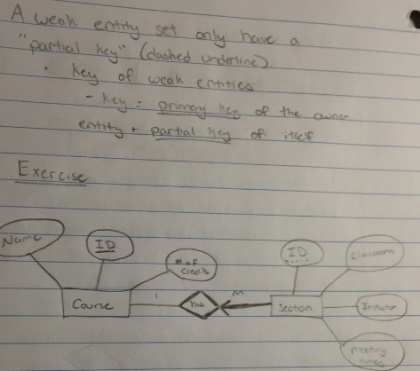 A weak entity set only have a
"partial key" (dashed underline)
• key of weak entities
- key = primary key of the owner
entity + partial key of itself
Exercise
Name
ID
# of
credits
Course
1
has
M
Section
ID
Classroom
Instructor
meeting
times